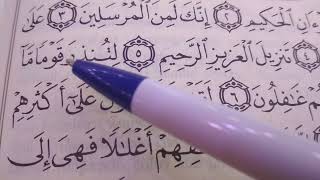 ءَانِ ٱلْحَكِيمِ ٢ إِنَّكَ لَمِنَ ٱلْمُرْسَلِينَ ٣ عَلَىٰ
٤ تَنزِيلَ ٱلْعَزِيزِ ٱلرَّحِيمِ ٥ لِتُنذِرَ قَوْمًا مَّآ
هُمْ غَٰفِلُونَ ٦ عَلَىٰٓ أَكْثَرِهِمْ
قِهِمْ أَغْلَٰلًا فَهِىَ إِلَى